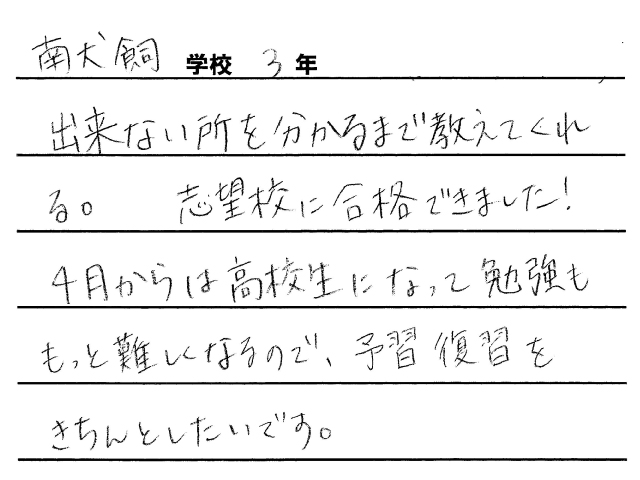 南犬飼 学校 3年
出来ない所を分かるまで教えてくれ
る。 志望校に合格できました!
4月からは高校生になって勉強も
もっと難しくなるので、予習復習を
きちんとしたいです。